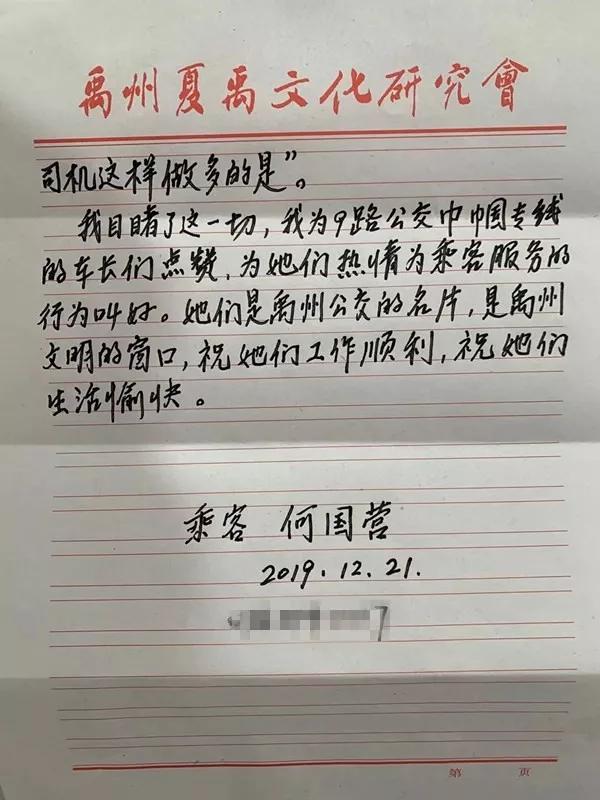 禹州夏禹文化研究會
司机这样做多的是”。
我目睹了这一切，我为9路公交巾帼专线
的车长们点赞，为她们热情为乘客服务的
行为叫好。她们是禹州公交的名片，是禹州
文明的窗口，祝她们工作顺利，祝她们
生活愉快。
乘客 何国营
2019.12.21.
7
第 页